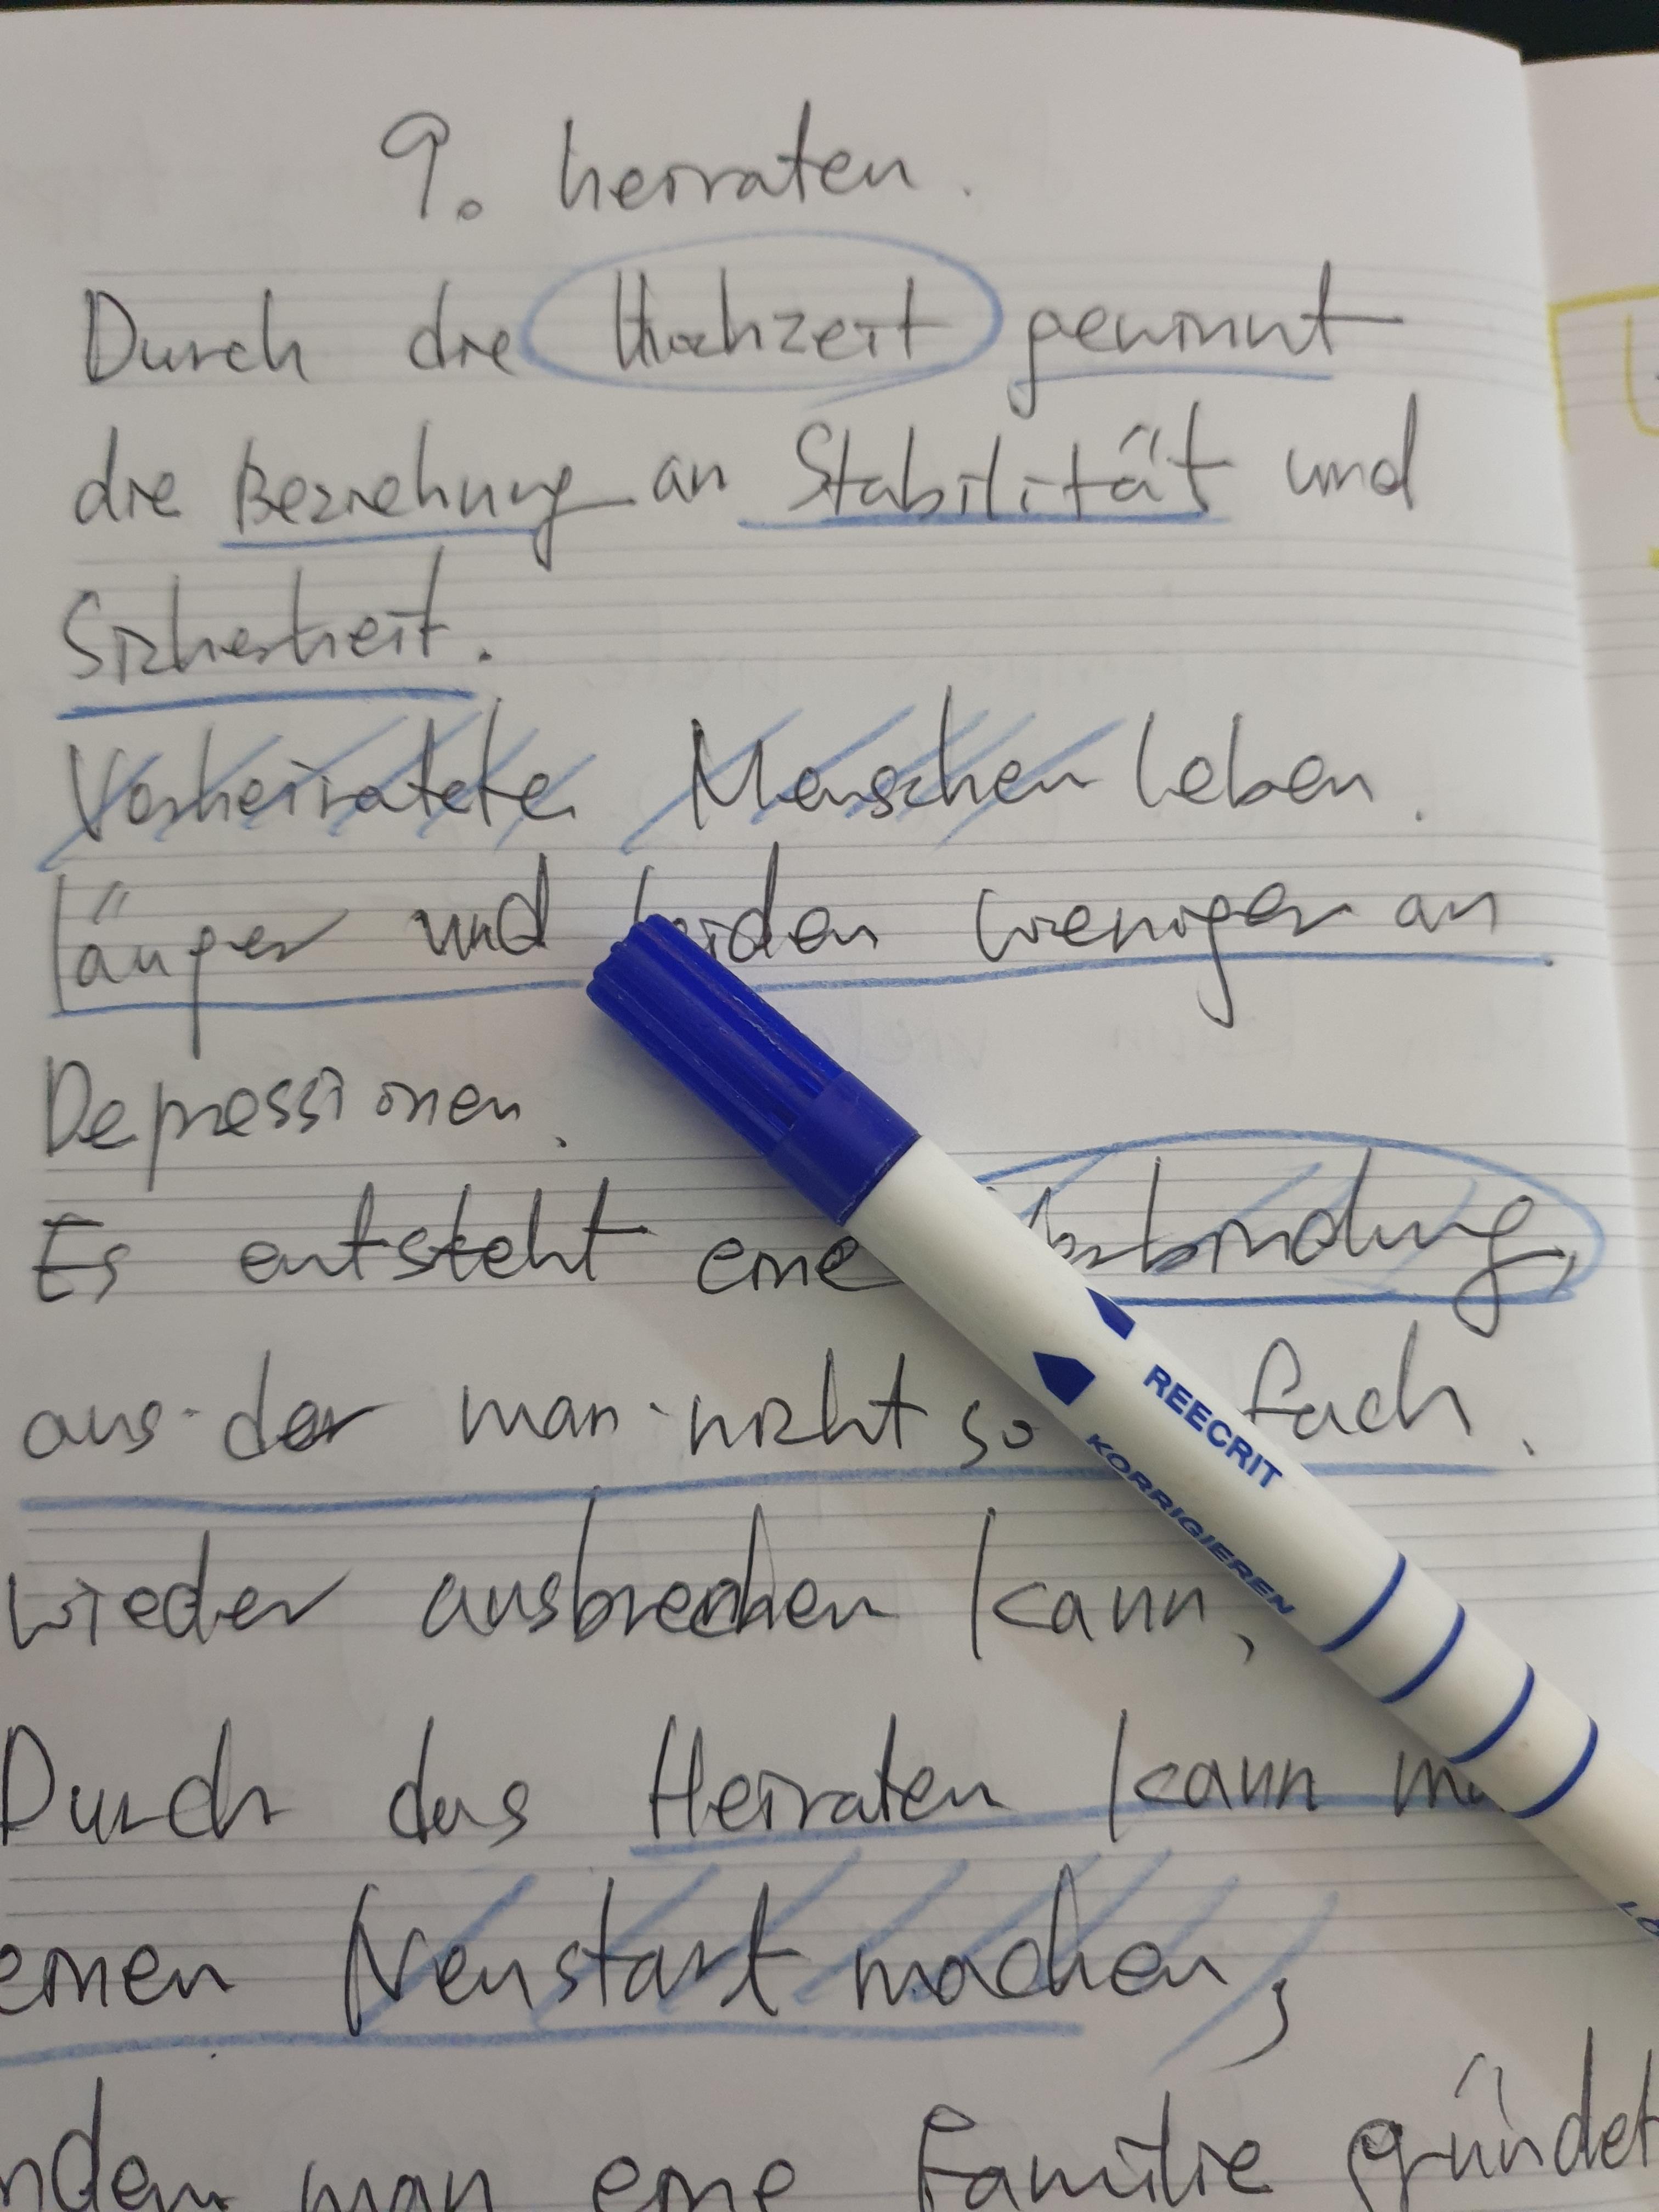 9. heiraten.
Durch die Hochzeit gewinnt
die Beziehung an Stabilität und
Sicherheit.
Verheiratete Menschen leben.
länger und leiden weniger an
Depressionen.
Es entsteht eine Verbindung,
aus der man nicht so fach.
wieder ausbrechen kann,
Durch das Heiraten kann
einen Neustart machen,
man eine Familie gründet
REECRIT
KORRIGIEREN